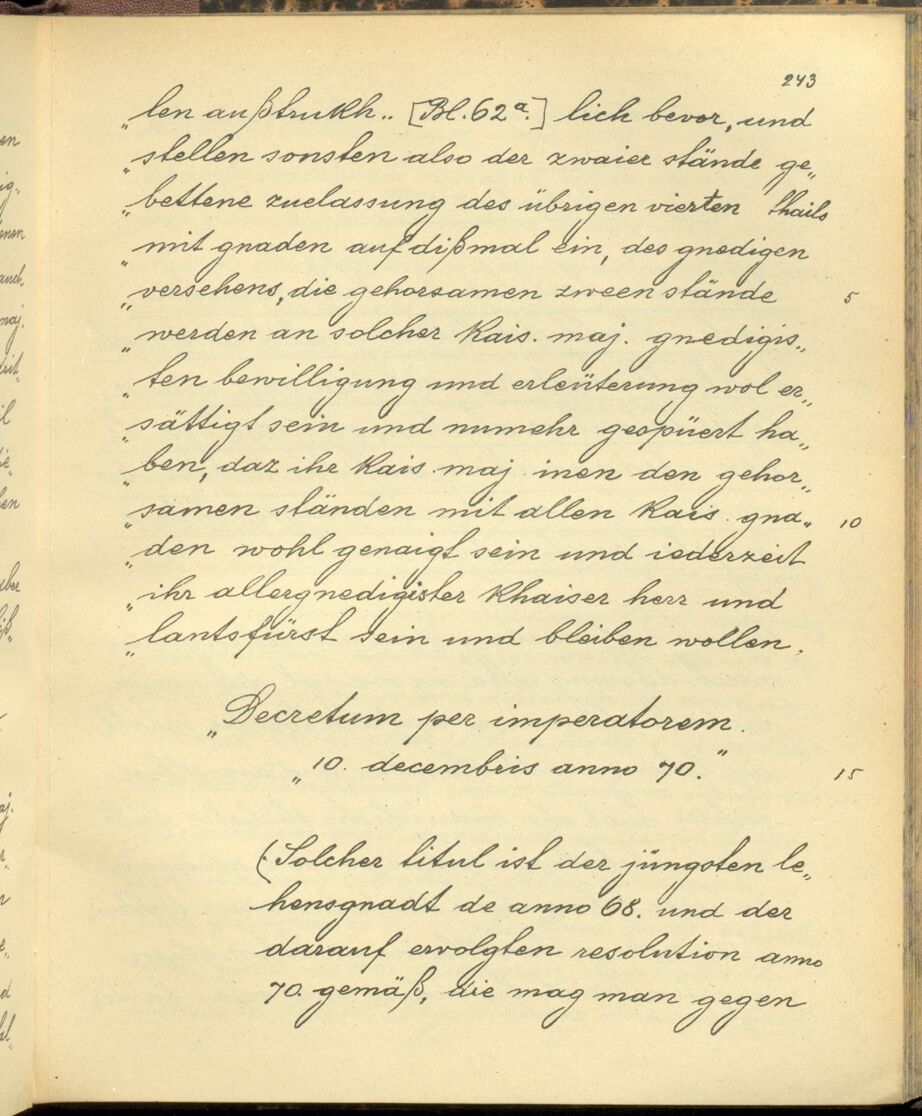 243
„len außtrukh„ [Bl. 62ª.] lich bevor, und
„stellen sonsten also der zwaier stände ge„
„bettene zuelassung des übrigen vierten thails
„mit gnaden auf dißmal ein, des gnedigen
„versehens, die gehorsamen zween stände 5
„werden an solcher Kais. maj. gnedigis„
„ten bewilligung und erleüterung wol er„
„sättigt sein und numehr gespüert ha„
„ben, daz ihr Kais. maj. inen den gehor„
„samen ständen mit allen Kais. gna„ 10
„den wohl genaigt sein und iederzeit
„ihr allergnedigister Khaiser herr und
„lantsfürst sein und bleiben wollen.
„Decretum per imperatorem.
„10. decembris anno 70.” 15
(Solcher titul ist der jüngsten le„
hensgnadt de anno 68. und der
darauf ervolgten resolution anno
70. gemäß, die mag man gegen